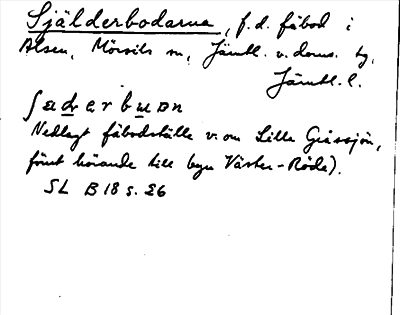 Själderbodarna, f.d. fäbod i
Alsen, Mörsils sn, Jämtl. v. doms. tg,
Jämtl. l.
ʃaderbuɒn
Nedlagt fäbodställe v. om Lille Gråssjön,
förut hörande till byn Väster-Röde).
SL B 18 s. 26